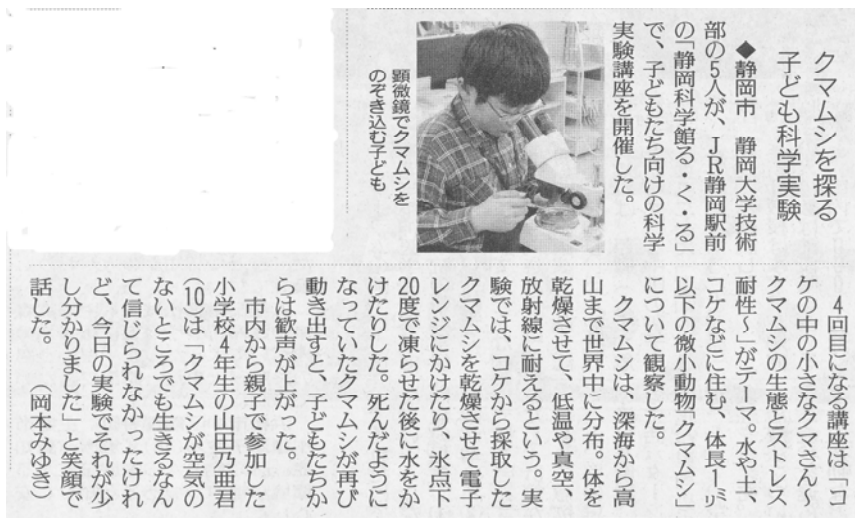 クマムシを探る
子ども科学実験
◆静岡市　静岡大学技術
部の5人が、JR静岡駅前
の「静岡科学館る・く・る」
で、子どもたち向けの科学
実験講座を開催した。
顕微鏡でクマムシを
のぞき込む子ども
4回目になる講座は「コ
ケの中の小さなクマさん〜
クマムシの生態とストレス
耐性〜」がテーマ。水や土、
コケなどに住む、体長1㍉
以下の微小動物「クマムシ」
について観察した。
クマムシは、深海から高
山まで世界中に分布。体を
乾燥させて、低温や真空、
放射線に耐えるという。実
験では、コケから採取した
クマムシを乾燥させて電子
レンジにかけたり、氷点下
20度で凍らせた後に水をか
けたりした。死んだように
なっていたクマムシが再び
動き出すと、子どもたちか
らは歓声が上がった。
市内から親子で参加した
小学校4年生の山田乃亜君
(10)は「クマムシが空気の
ないところでも生きるなん
て信じられなかったけれ
ど、今日の実験でそれが少
し分かりました」と笑顔で
話した。　（岡本みゆき）